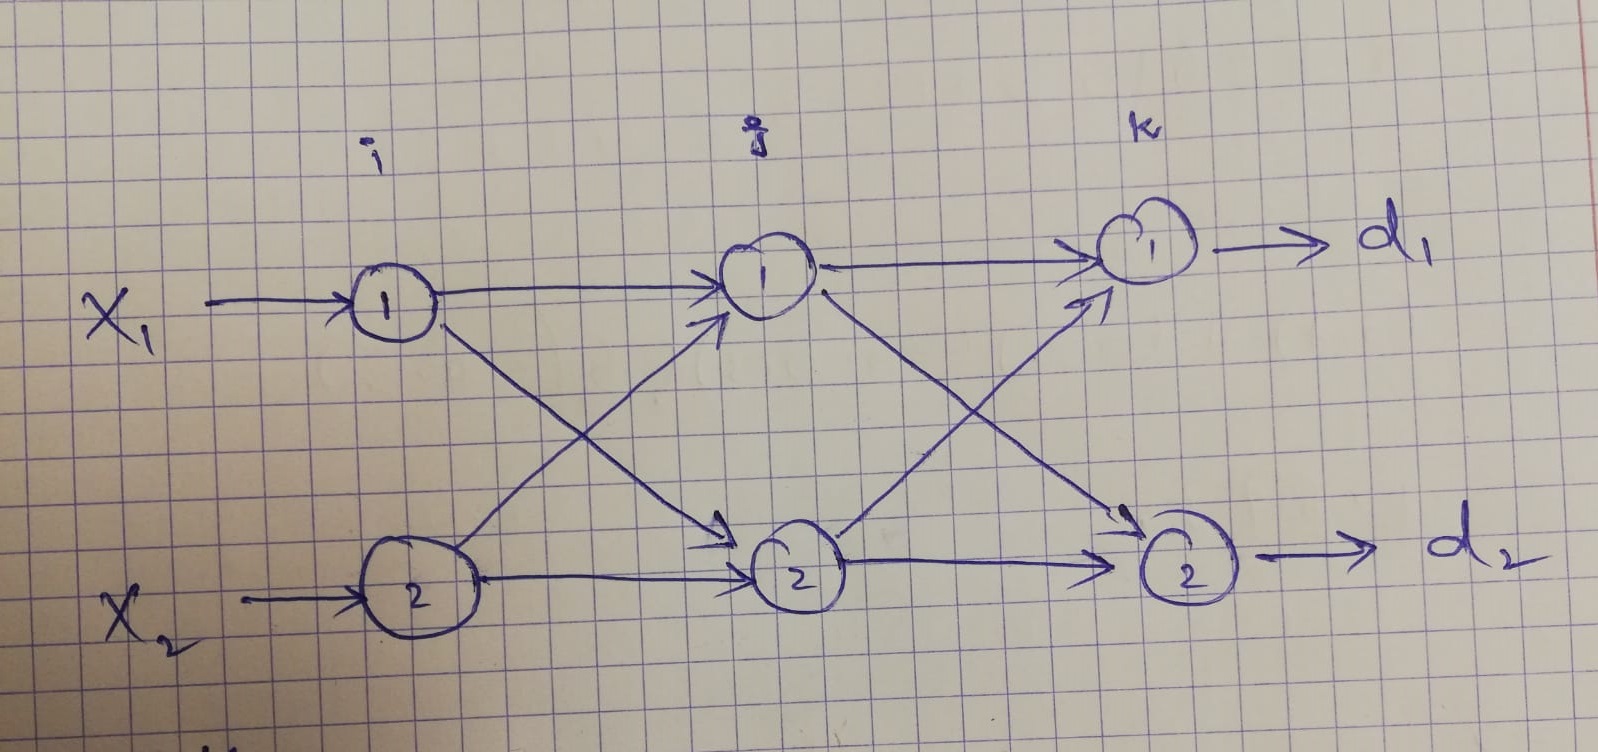 i j k
X1 1 1 1 d1
X2 2 2 2 d2